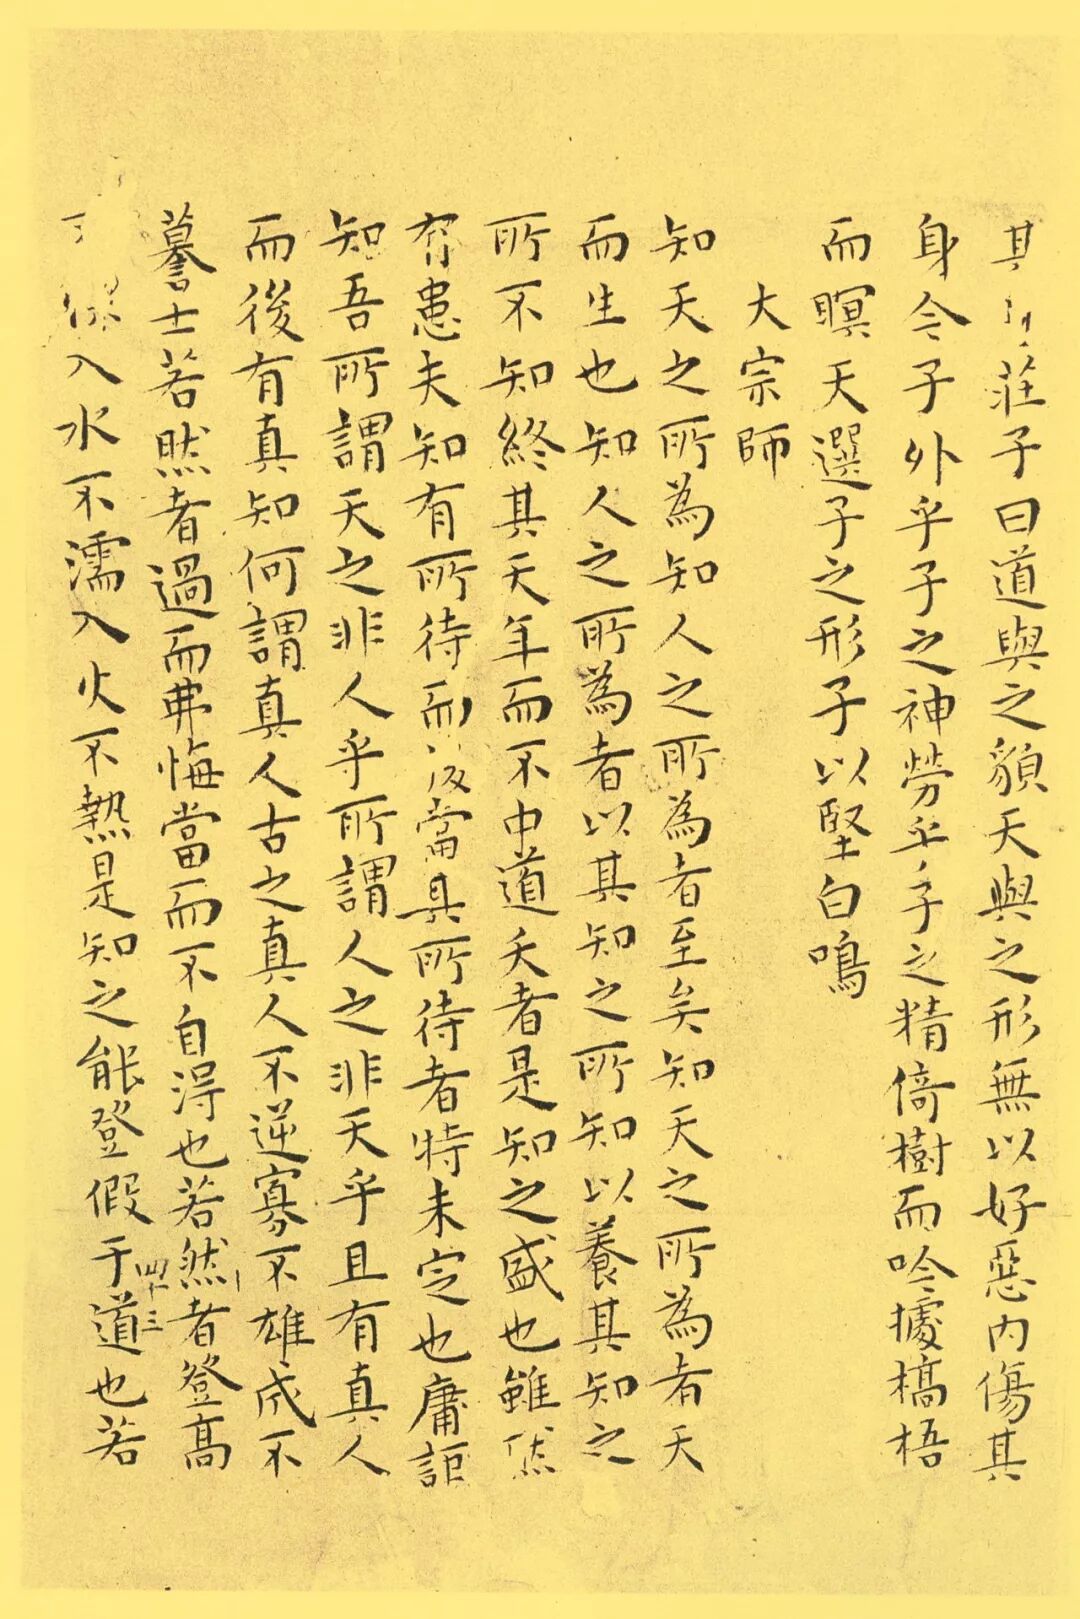 其莊子曰道與之䫉天與之形無以好惡內傷其
身今子外乎子之神勞乎子之精倚樹而吟據槁梧
而瞑天選子之形子以堅白鳴
大宗師
知天之所為知人之所為者至矣知天之所為者天
而生也知人之所為者以其知之所知以養其知之
所不知終其天年而不中道夭者是知之盛也雖然
有患夫知有所待而後當其所待者特未定也庸詎
知吾所謂天之非人乎所謂人之非天乎且有真人
而後有真知何謂真人古之真人不逆寡不雄成不
謩士若然者過而弗悔當而不自得也若然者登高
四十三
入水不濡入火不熱是知之能登假于道也若